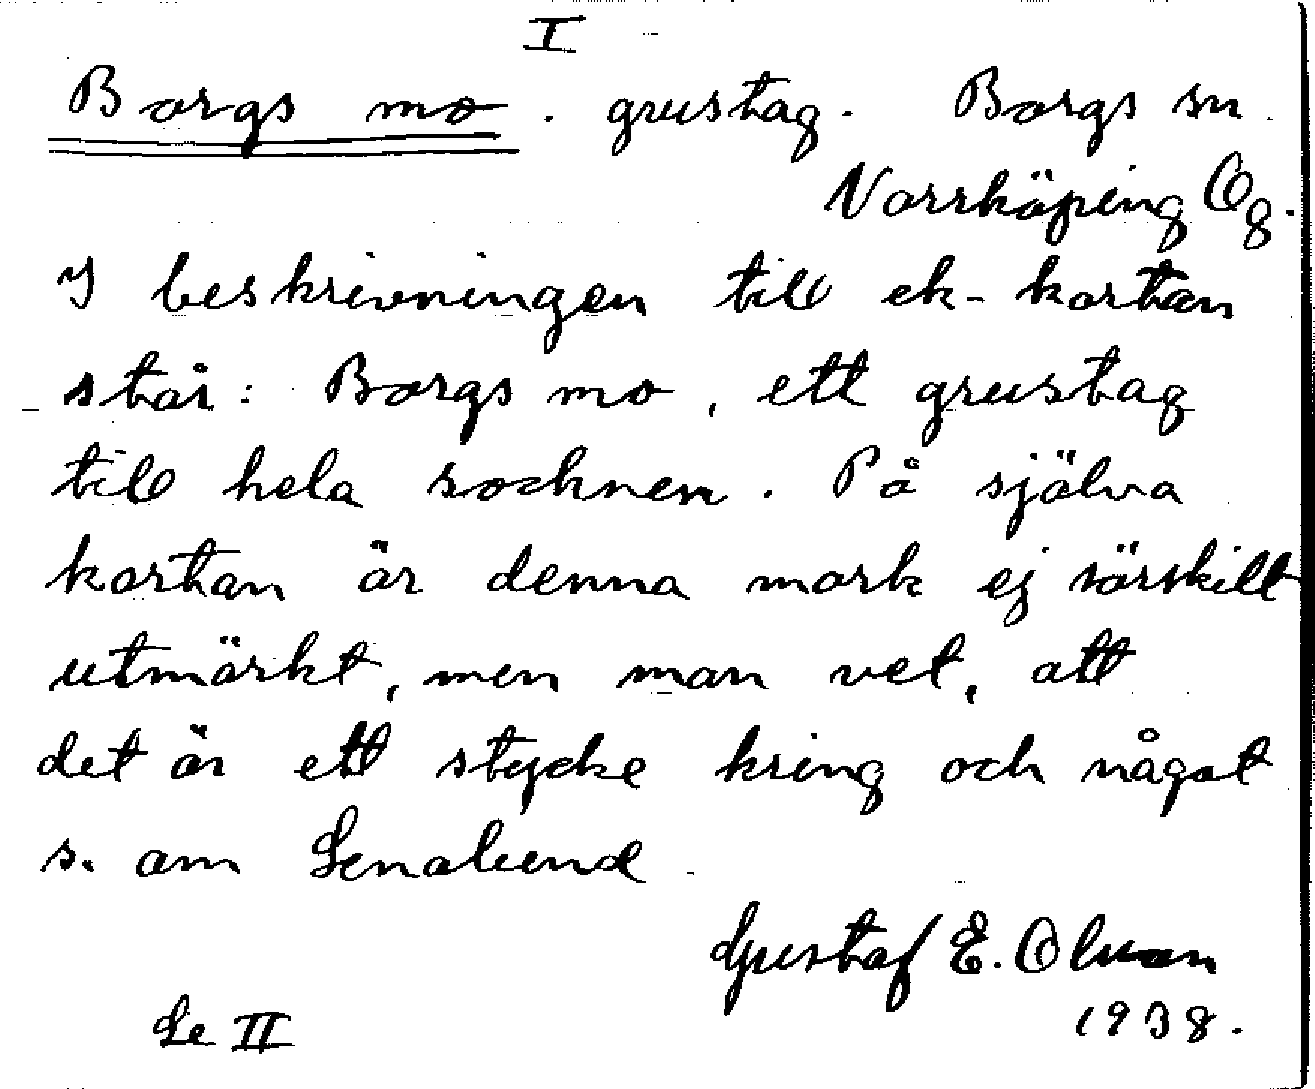 I
Borgs mo. grustag. Borgs sn.
Norrköping Ög.
I beskrivningen till ek-kartan
står: Borgs mo, ett grustag
till hela socknen. På själva
kartan är denna mark ej särskilt
utmärkt, men man vet, att
det är ett stycke kring och något
s. om Lenalund
Gustaf E. Olsson
1938.
Se II